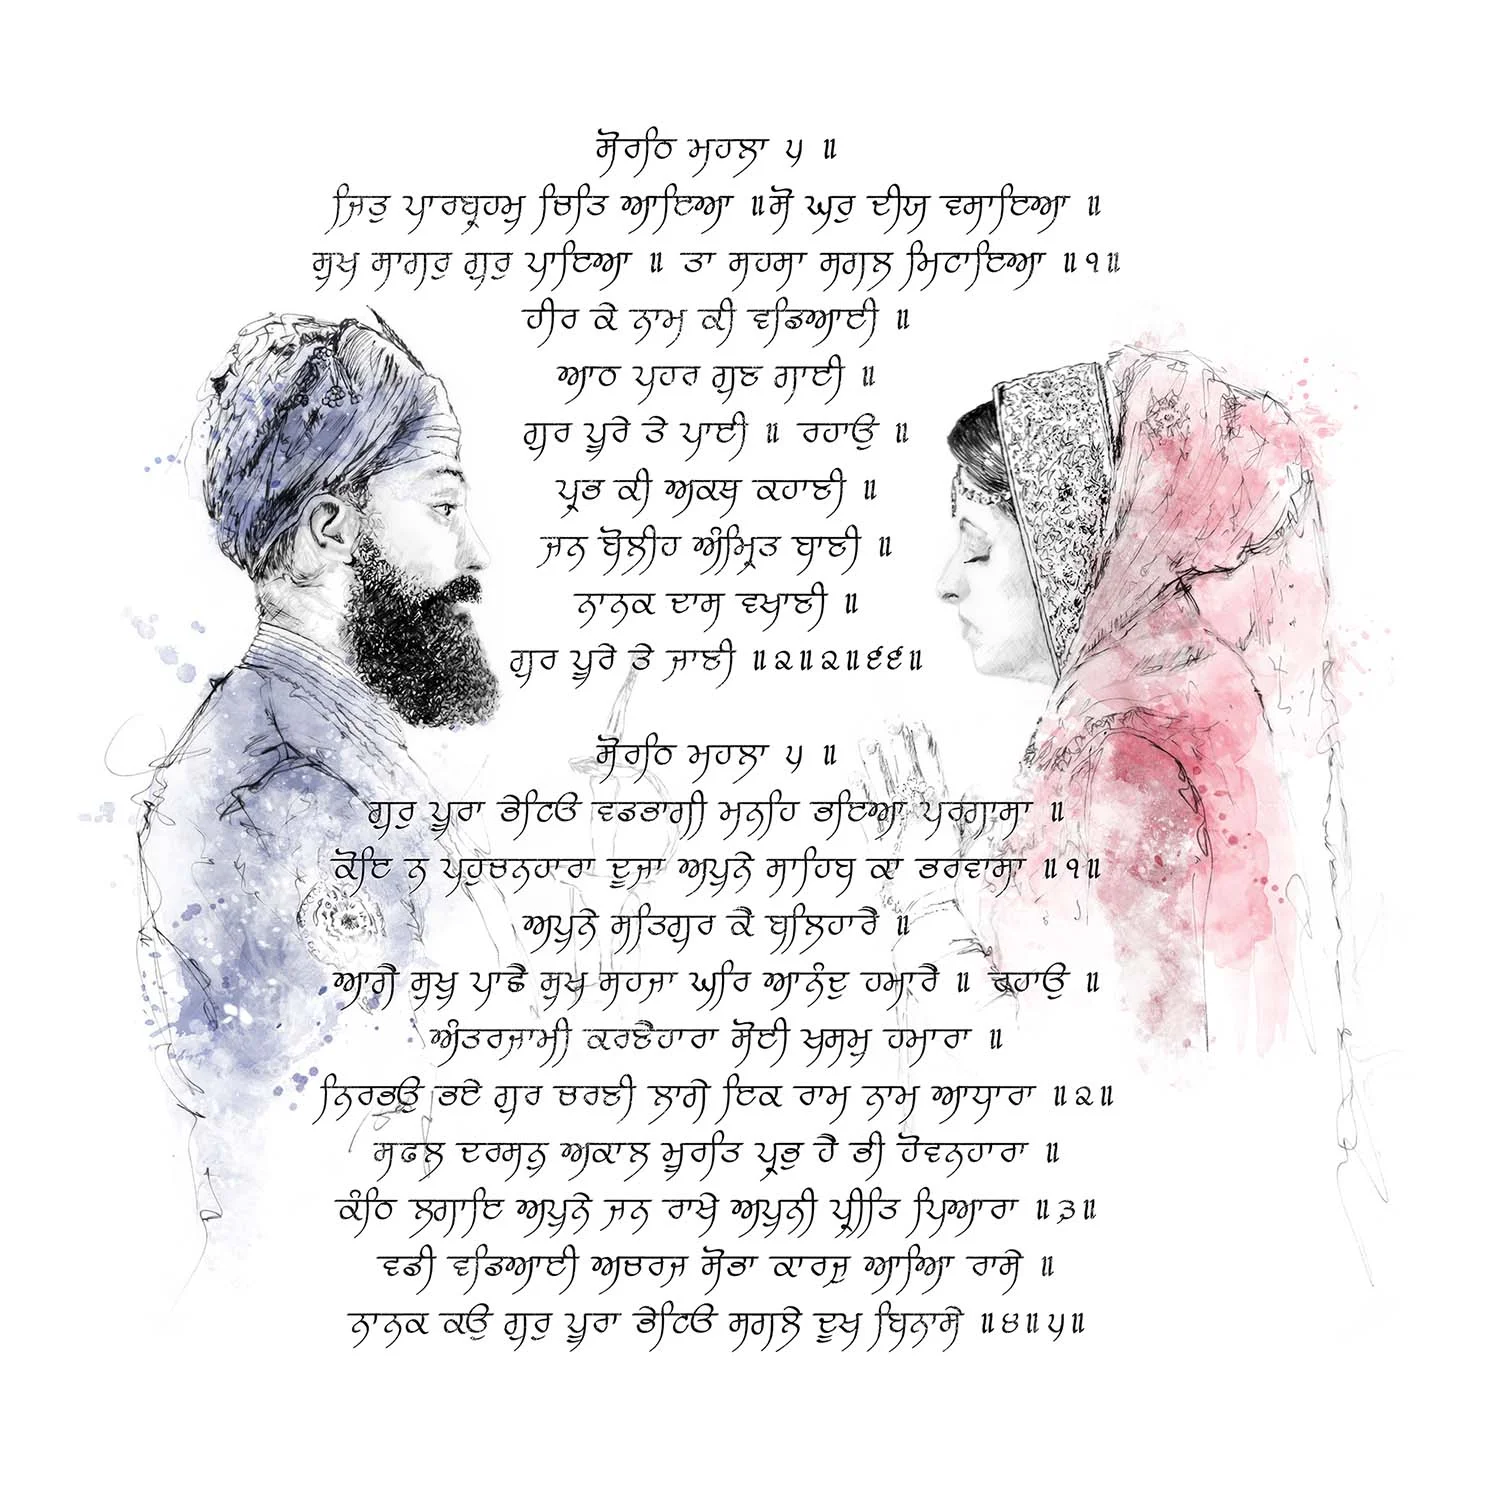 ਸੋਰਠਿ ਮਹਲਾ ੫ ॥
ਜਿਤੁ ਪਾਰਬ੍ਰਹਮੁ ਚਿਤਿ ਆਇਆ ॥ਸੋ ਘਰੁ ਦੀਯ ਵਸਾਇਆ ॥
ਸੁਖ ਸਾਗਰੁ ਗੁਰੁ ਪਾਇਆ ॥ ਤਾ ਸਹਸਾ ਸਗਲ ਮਿਟਾਇਆ ॥੧॥
ਹੀਰ ਕੇ ਨਾਮ ਕੀ ਵਡਿਆਈ ॥
ਆਠ ਪਹਰ ਗੁਣ ਗਾਈ ॥
ਗੁਰ ਪੂਰੇ ਤੇ ਪਾਈ ॥ ਰਹਾਉ ॥
ਪ੍ਰਭ ਕੀ ਅਕਥ ਕਹਾਣੀ ॥
ਜਨ ਬੋਲੀਹ ਅੰਮ੍ਰਿਤ ਬਾਣੀ ॥
ਨਾਨਕ ਦਾਸ ਵਖਾਣੀ ॥
ਗੁਰ ਪੂਰੇ ਤੇ ਜਾਣੀ ॥੨॥੨॥੬੬॥
ਸੋਰਠਿ ਮਹਲਾ ੫ ॥
ਗੁਰੁ ਪੂਰਾ ਭੇਟਿਓ ਵਡਭਾਗੀ ਮਨਹਿ ਭਇਆ ਪਰਗਾਸਾ ॥
ਕੋਇ ਨ ਪਹੁਚਨਹਾਰਾ ਦੂਜਾ ਅਪੁਨੇ ਸਾਹਿਬ ਕਾ ਭਰਵਾਸਾ ॥੧॥
ਅਪੁਨੇ ਸਤਿਗੁਰ ਕੈ ਬਲਿਹਾਰੈ ॥
ਆਗੈ ਸੁਖੁ ਪਾਛੈ ਸੁਖ ਸਹਜਾ ਘਰਿ ਆਨੰਦੁ ਹਮਾਰੈ ॥ ਰਹਾਉ ॥
ਅੰਤਰਜਾਮੀ ਕਰਣੈਹਾਰਾ ਸੋਈ ਖਸਮੁ ਹਮਾਰਾ ॥
ਨਿਰਭਉ ਭਏ ਗੁਰ ਚਰਣੀ ਲਾਗੇ ਇਕ ਰਾਮ ਨਾਮ ਆਧਾਰਾ ॥੨॥
ਸਫਲ ਦਰਸਨੁ ਅਕਾਲ ਮੂਰਤਿ ਪ੍ਰਭੁ ਹੈ ਭੀ ਹੋਵਨਹਾਰਾ ॥
ਕੰਠਿ ਲਗਾਇ ਅਪੁਨੇ ਜਨ ਰਾਖੇ ਅਪੁਨੀ ਪ੍ਰੀਤਿ ਪਿਆਰਾ ॥੩॥
ਵਡੀ ਵਡਿਆਈ ਅਚਰਜ ਸੋਭਾ ਕਾਰਜੁ ਆਆਿ ਰਾਸੇ ॥
ਨਾਨਕ ਕਉ ਗੁਰੁ ਪੂਰਾ ਭੇਟਿਓ ਸਗਲੇ ਦੂਖ ਬਿਨਾਸੇ ॥੪॥੫॥